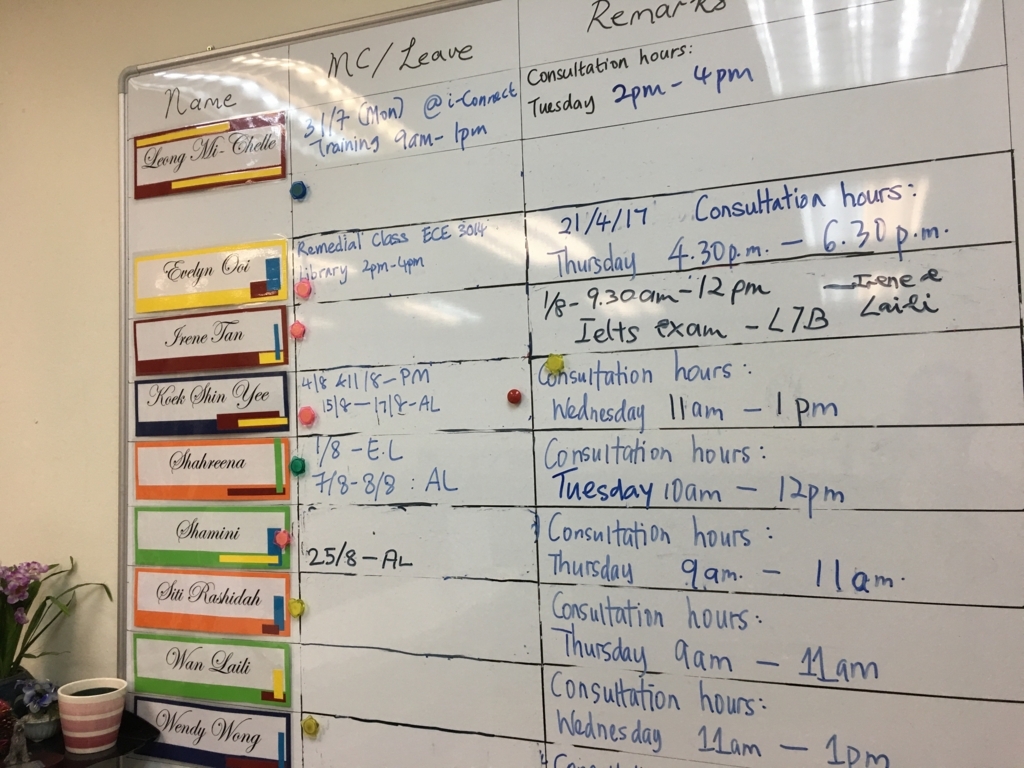 Name
MC/Leave
Remarks
Leong Mi-Chelle
31/7 (Mon) @ i-Connect
Training 9am-1pm
Consultation hours:
Tuesday 2pm - 4pm
Evelyn Ooi
Remedial Class ECE 3014
Library 2pm-4pm
21/4/17 Consultation hours:
Thursday 4.30p.m. - 6.30p.m.
Irene Tan
1/8 - 9.30am - 12pm - Irene &
Ielts exam - L7B Laili
Koek Shin Yee
4/8 & 11/8 - PM
15/8 - 17/8 - AL
Consultation hours:
Wednesday 11am - 1pm
Shahreena
1/8 - E.L
7/8 - 8/8 : AL
Consultation hours:
Tuesday 10am - 12pm
Shamini
25/8 - AL
Consultation hours:
Thursday 9am. - 11am.
Siti Rashidah
Consultation hours:
Thursday 9am - 11am
Wan Laili
Consultation hours:
Wednesday 11am - 1pm
Wendy Wong
Consultation hours: